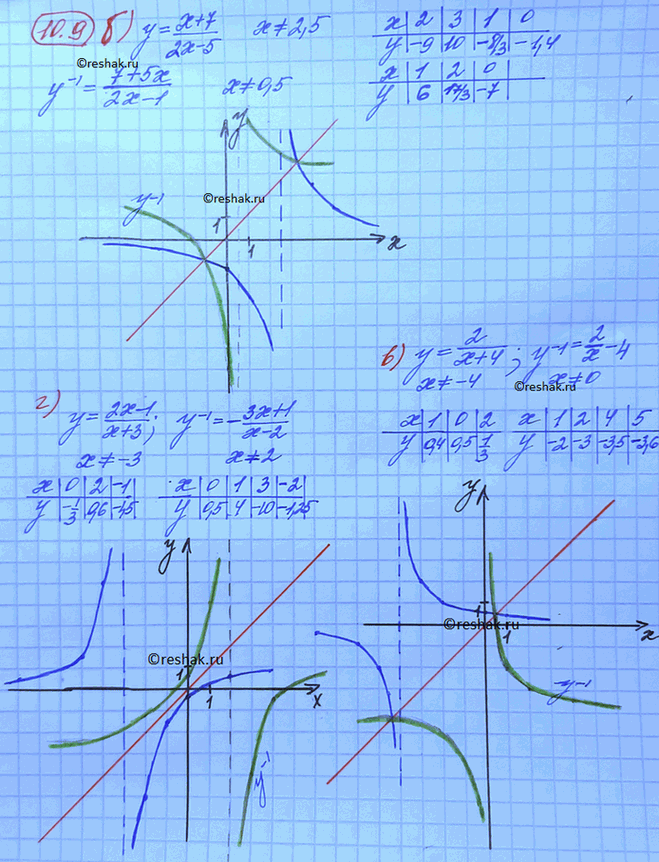 10.9 б) y = (x+7)/(2x-5) x≠2,5
©reshak.ru
y⁻¹ = (7+5x)/(2x-1) x≠0,5
x | 2 | 3 | 1 | 0
y | -9 | 10 | -8/3 | -1,4
x | 1 | 2 | 0 |
y | 6 | 17/3 | -7 |
y
y⁻¹
©reshak.ru
1
1
x
в) y = 2/(x+4); y⁻¹ = 2/x - 4
x≠-4 x≠0
©reshak.ru
x | 1 | 0 | 2
y | 0,4 | 0,5 | 1/3
x | 1 | 2 | 4 | 5
y | -2 | -3 | -3,5 | -3,6
г) y = (2x-1)/(x+3); y⁻¹ = -(3x+1)/(x-2)
x≠-3 x≠2
x | 0 | 2 | -1
y | -1/3 | 0,6 | -1,5
x | 0 | 1 | 3 | -2
y | 0,5 | 4 | -10 | -1,25
y
1
©reshak.ru
1
x
y⁻¹
y
1
©reshak.ru
1
x
y⁻¹